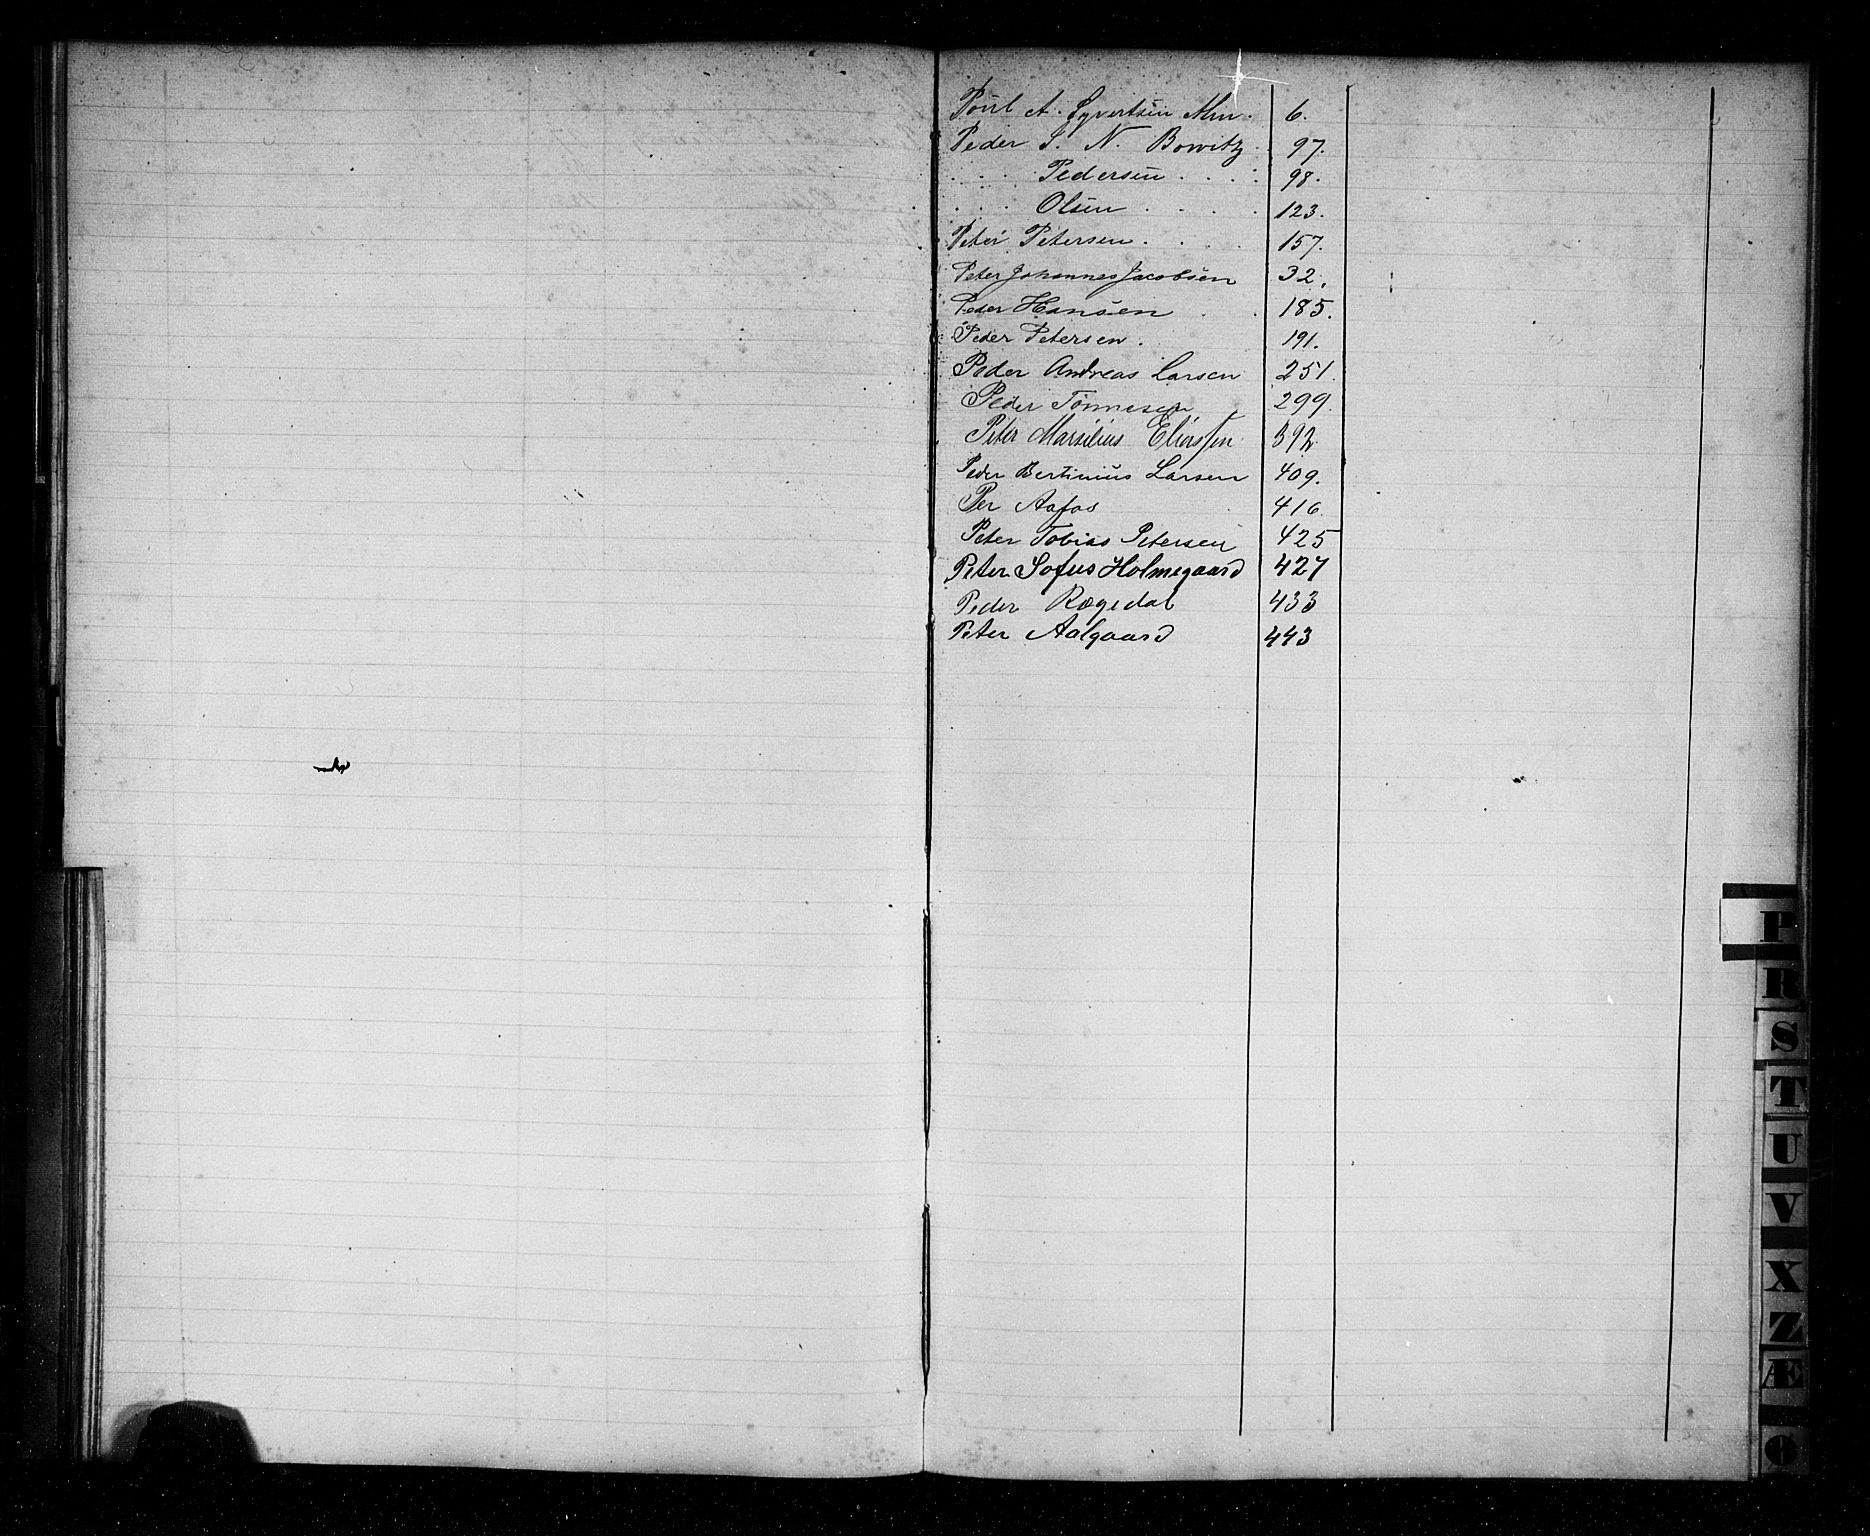 Poul A. Syvertsen Alm. 6.
Peder S. N. Bowitz. 97.
. . . Pedersen . . . . 98.
. . . Olsen . . . . 123.
Peter Petersen. . . . 157.
Peter Johannes Jacobsen 32.
Peder Hansen . . 185.
Peder Petersen. 191.
Peder Andreas Larsen 251.
Peder Tönnesen 299.
Peter Marselius Eliassen 392.
Peder Bertinius Larsen 409.
Per Aafos 416.
Peter Tobias Petersen 425
Peter Sofus Holmegaard 427
Peder Rægedal 433
Peter Aalgaard 443
P
R
S
T
U
V
X
Z
Æ
Ø